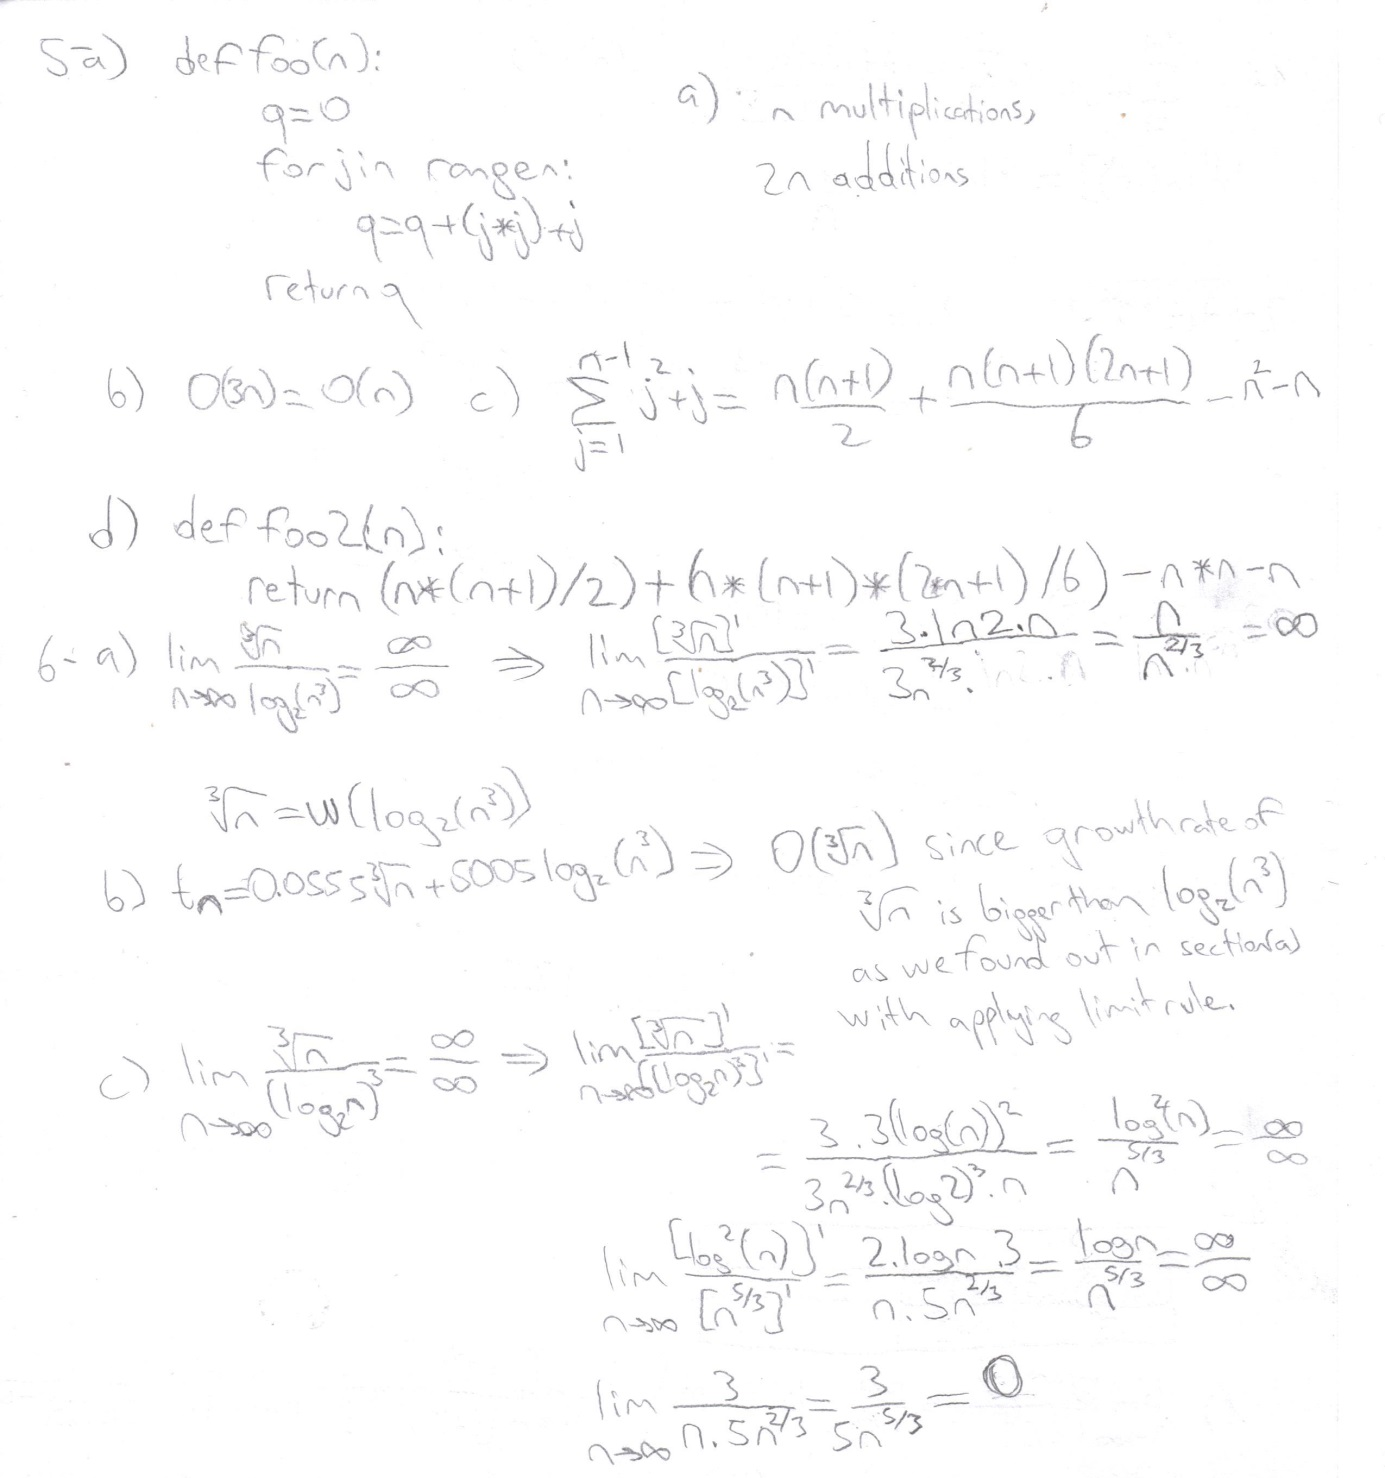 5-a) def foo(n):
q=0
for j in range n:
q=q+(j*j)+j
return q
a) n multiplications,
2n additions
b) O(3n)=O(n) c) ∑_{j=1}^{n-1} j²+j = n(n+1)/2 + n(n+1)(2n+1)/6 - n²-n
d) def foo2(n):
return (n*(n+1)/2)+(n*(n+1)*(2*n+1)/6)-n*n-n
6-a) lim_{n→∞} ∛n / log₂(n³) = ∞/∞ ⇒ lim_{n→∞} [∛n]' / [log₂(n³)]' = 3.ln2.n / 3n^{2/3}. = n / n^{2/3}. = ∞
∛n = w(log₂(n³))
b) tₙ=0.0555∛n+5005log₂(n³) ⇒ O(∛n) since growth rate of
∛n is bigger than log₂(n³)
as we found out in section(a)
with applying limit rule.
c) lim_{n→∞} ∛n / (log₂n)³ = ∞/∞ ⇒ lim_{n→∞} [∛n]' / [(log₂n)³]' =
= 3.3(log(n))² / 3n^{2/3}.(log2)³.n = log²(n) / n^{5/3} = ∞/∞
lim_{n→∞} [log²(n)]' / [n^{5/3}]' = 2.logn.3 / n.5n^{2/3} = logn / n^{5/3} = ∞/∞
lim_{n→∞} 3 / n.5n^{2/3} = 3 / 5n^{5/3} = 0